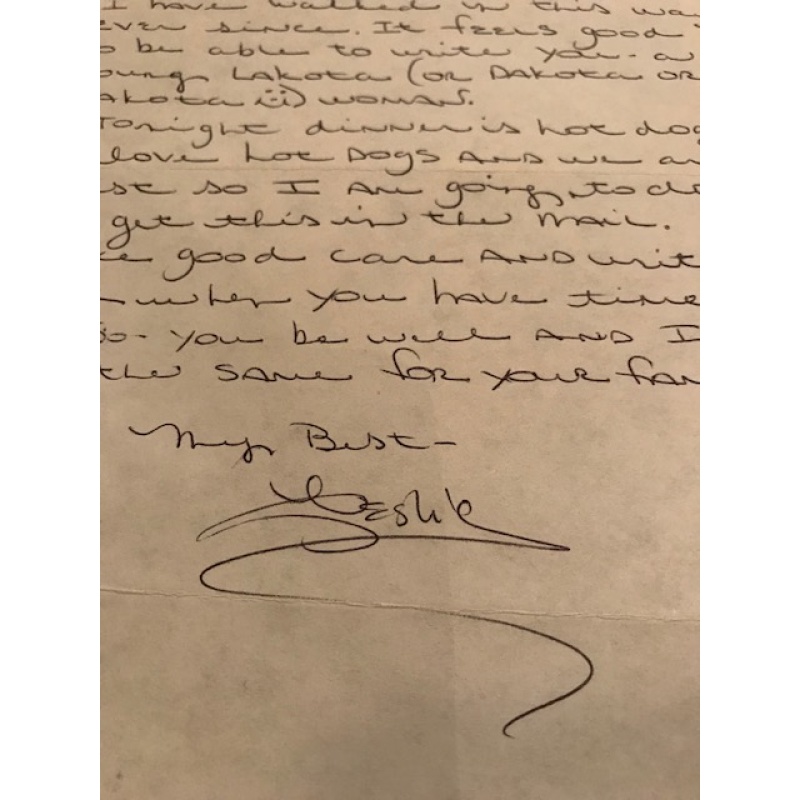 I have walked in this wa
ever since. It feels good
o be able to write you - a
oung Lakota (or Dakota or
akota :) woman.
Tonight dinner is hot dog
love hot dogs AND we ar
st so I am going to do
get this in the mail.
e good care AND writ
when you have time
so - you be well AND I
the same for your fam
My Best -
Leslie